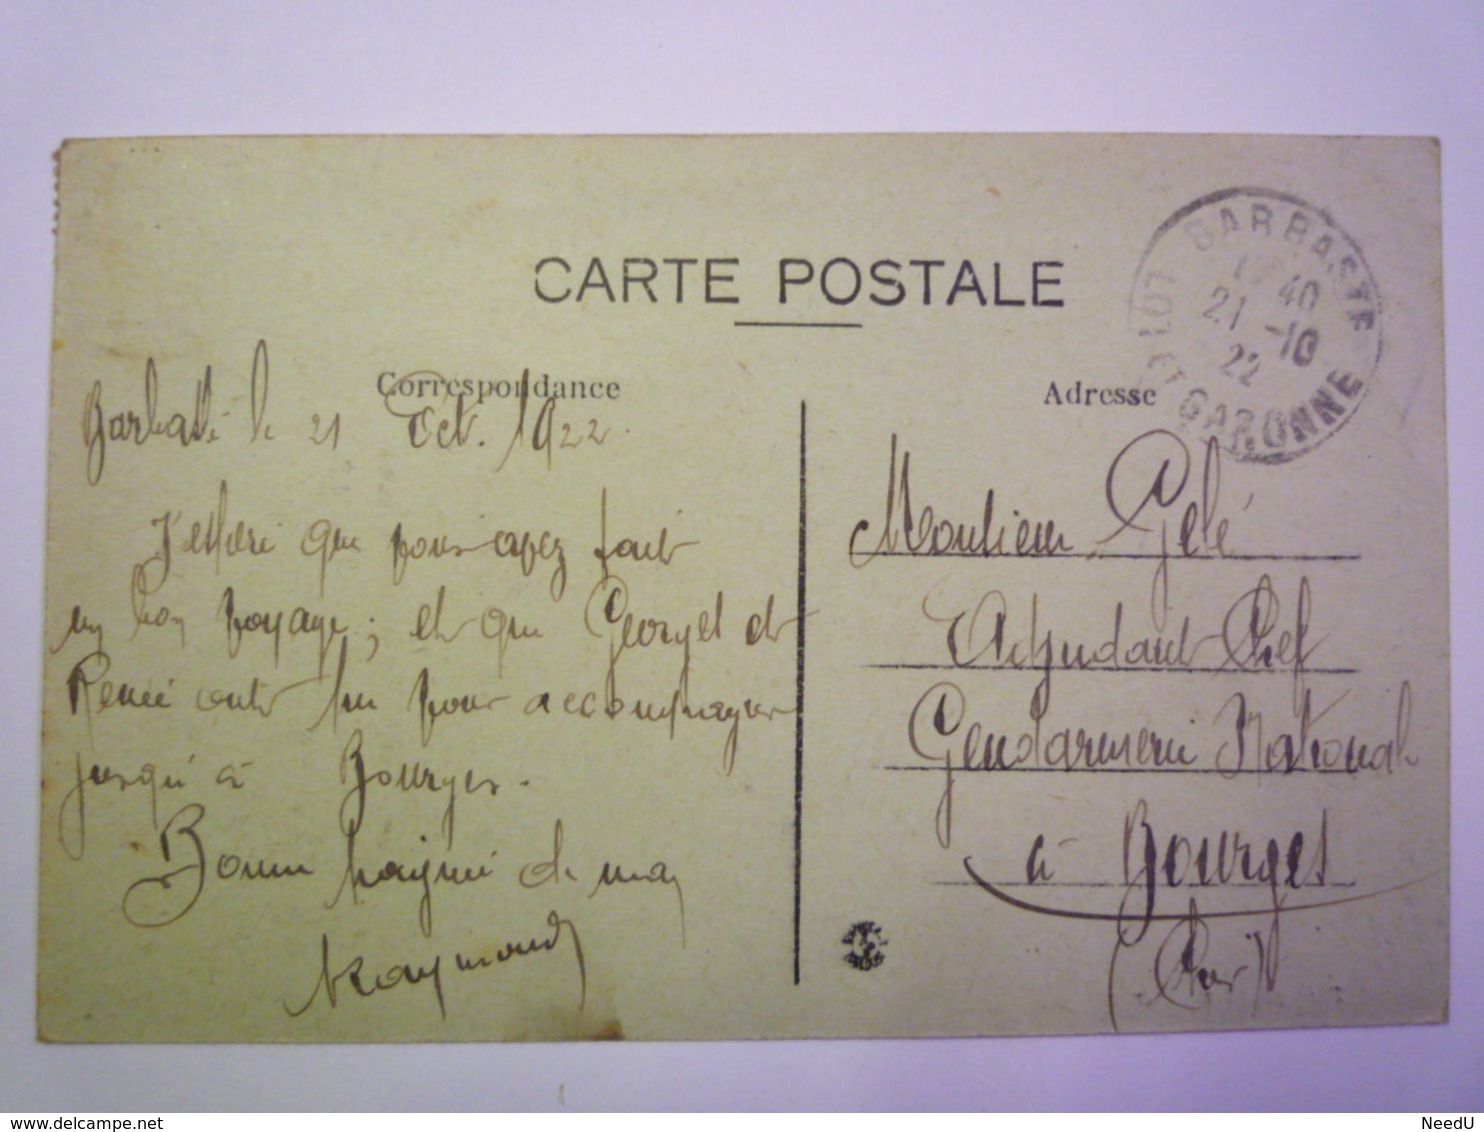 CARTE POSTALE
Correspondance
Adresse
BARBASTE
40
21 -10
22
LOT ET GARONNE
Barbaste le 21 Oct. 1922.
J'espère que vous avez fait
un bon voyage; et que Georget et
Renée ont pu vous accompagner
jusqu'à Bourges.
Bonne poignée de main
Raymond
Monsieur Gelé
Adjudant Chef
Gendarmerie Nationale
à Bourges
(Cher)
www.delcampe.net
NeedU